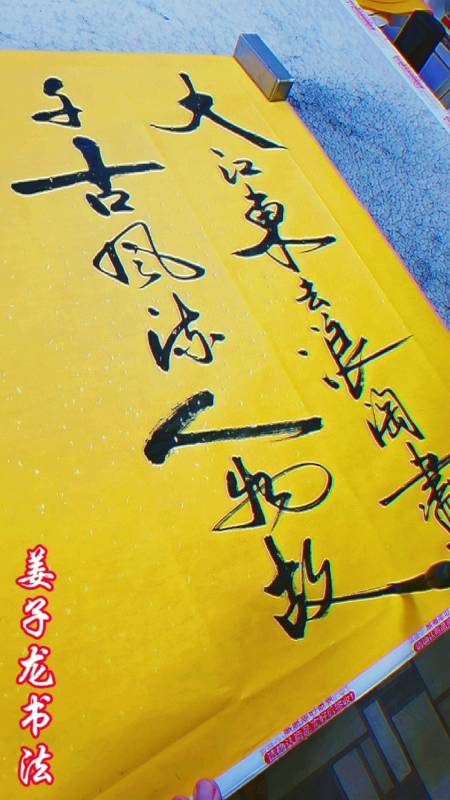 大江東去浪淘盡
千古風流人物故
姜子龙书法